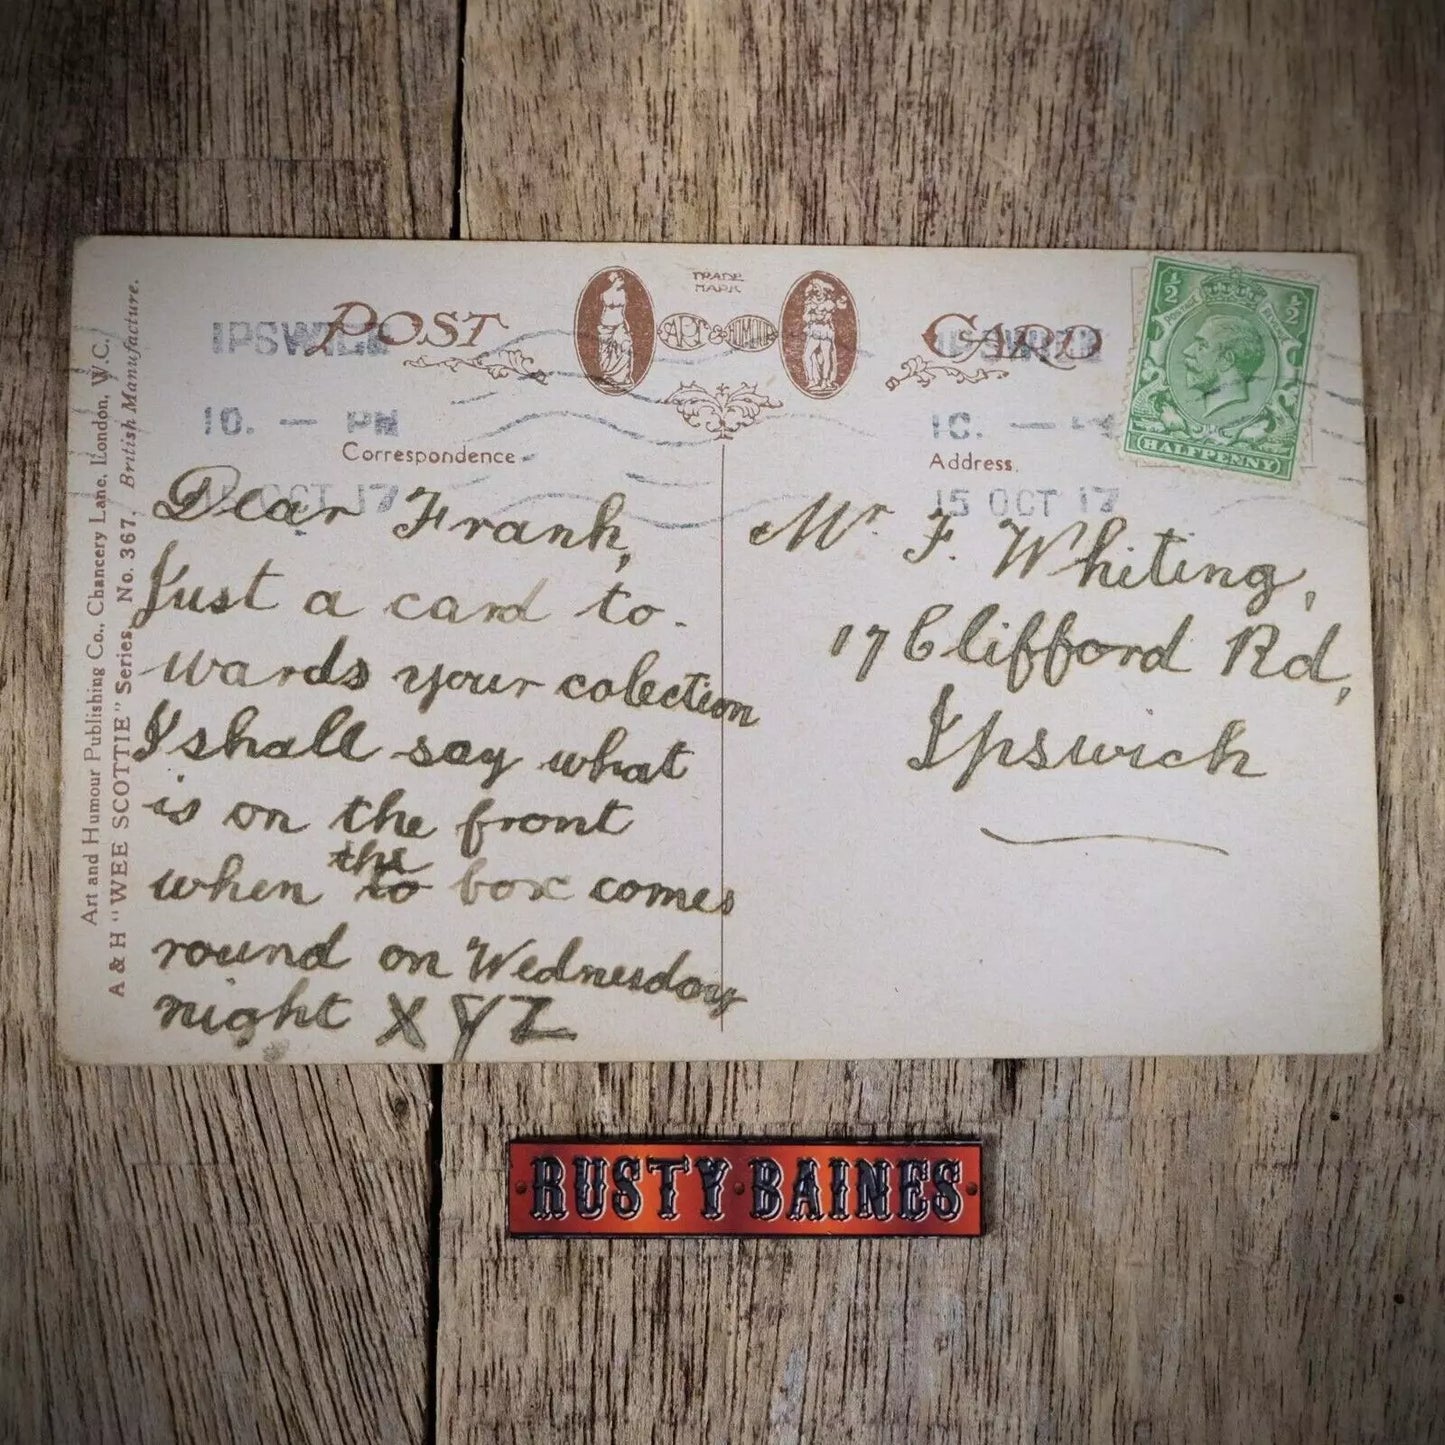 POST CARD
TRADE
MARK
ART & HUMOUR
IPSWICH
10. — PM
15 OCT 17
IPSWICH
10. — PM
15 OCT 17
POSTAGE REVENUE
½ ½
HALFPENNY
Correspondence
Address.
Dear Frank,
Just a card to-
wards your colection
I shall say what
is on the front
when the to box comes
round on Wednesday
night X Y Z
Mr F. Whiting,
17 Clifford Rd,
Ipswich
Art and Humour Publishing Co., Chancery Lane, London, W.C.,
A & H "WEE SCOTTIE" Series, No. 367. British Manufacture.
RUSTY BAINES